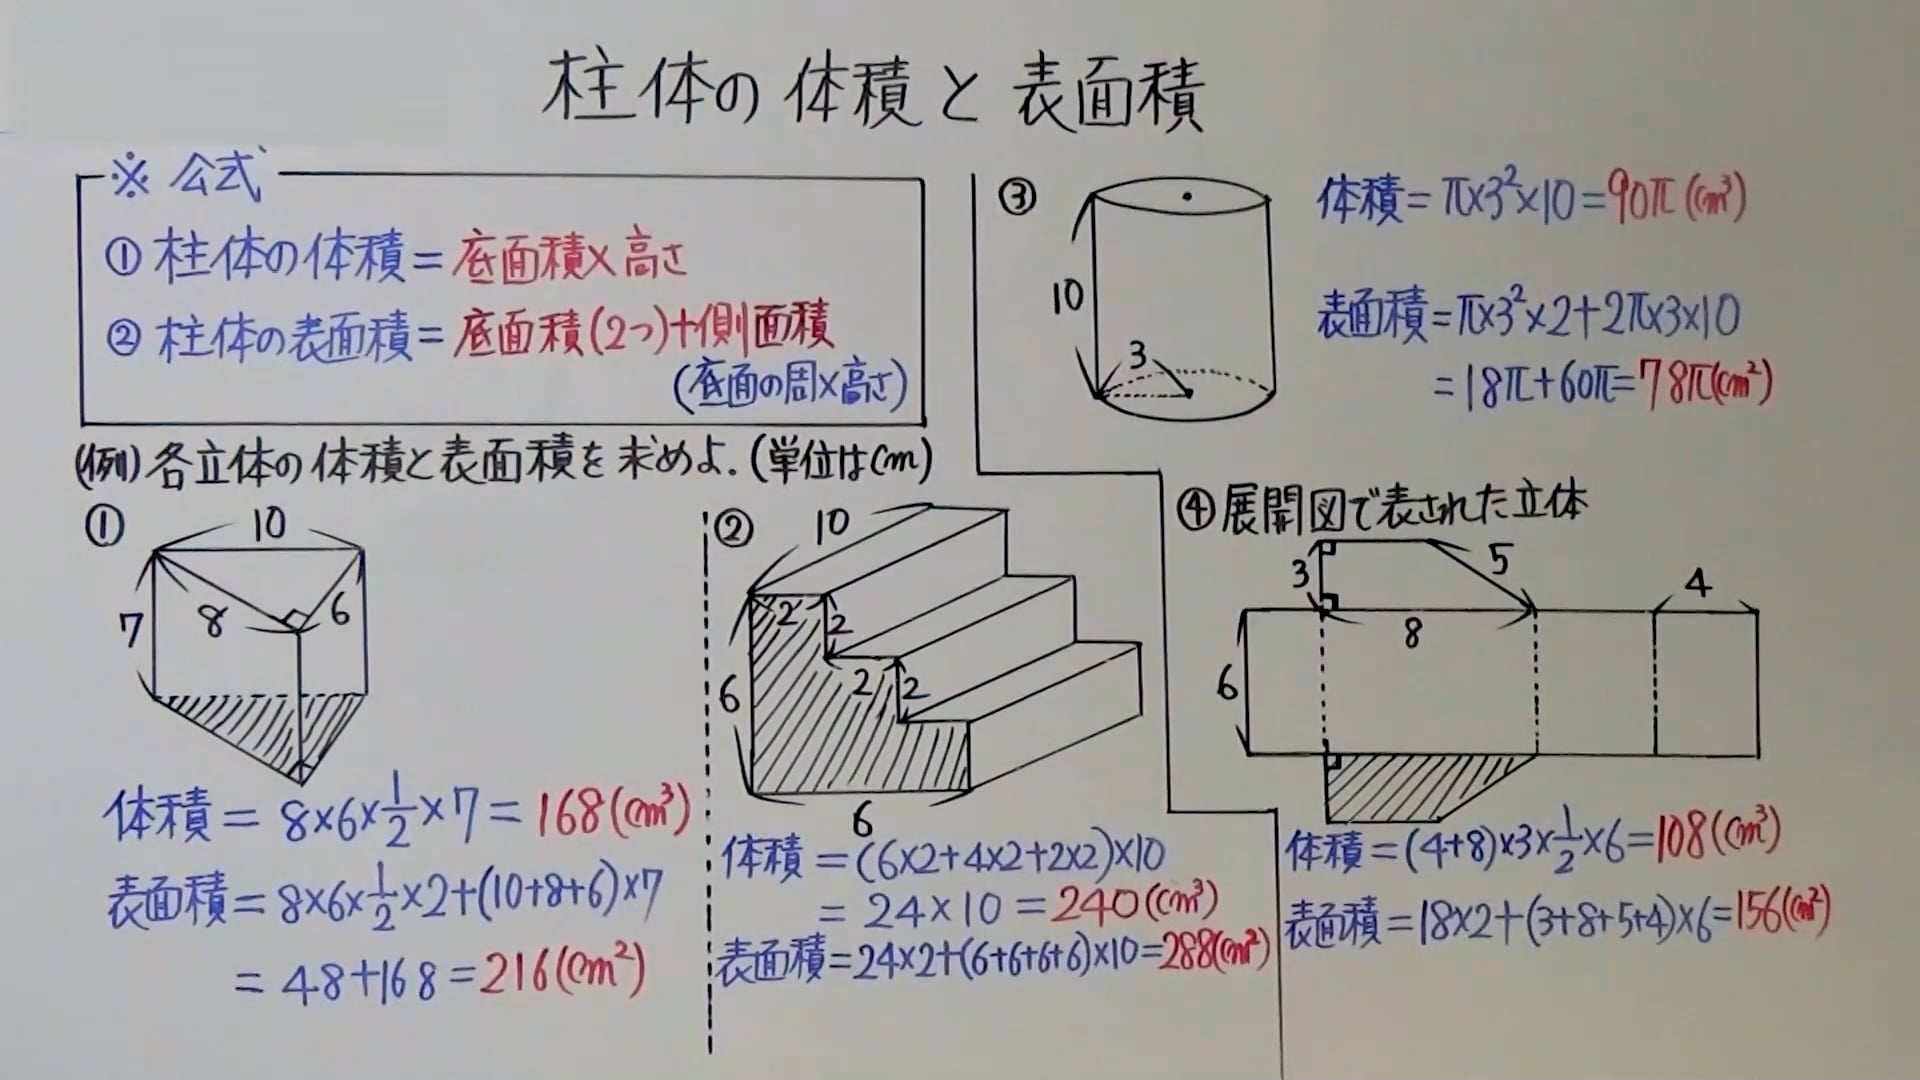 柱体の体積と表面積
※ 公式
① 柱体の体積 = 底面積×高さ
② 柱体の表面積 = 底面積(2つ)+側面積
(底面の周×高さ)
(例) 各立体の体積と表面積を求めよ. (単位はcm)
①
10
7
8
6
体積 = 8×6×1/2×7 = 168(cm³)
表面積 = 8×6×1/2×2+(10+8+6)×7
= 48+168 = 216(cm²)
②
10
2
2
2
2
6
6
体積 = (6×2+4×2+2×2)×10
= 24×10 = 240(cm³)
表面積 = 24×2+(6+6+6+6)×10=288(cm²)
③
10
3
体積 = π×3²×10 = 90π(cm³)
表面積 = π×3²×2+2π×3×10
= 18π+60π = 78π(cm²)
④ 展開図で表された立体
3
5
4
8
6
体積 = (4+8)×3×1/2×6 = 108(cm³)
表面積 = 18×2+(3+8+5+4)×6 = 156(cm²)